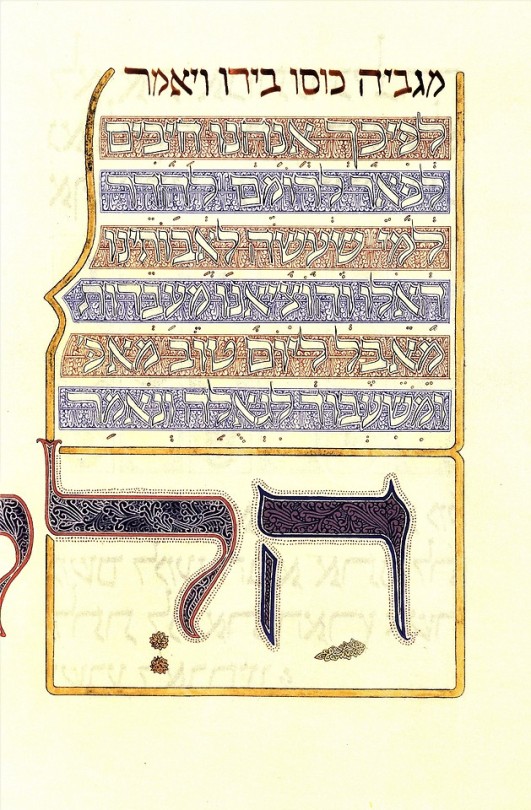 מגביה כוסו בידו ויאמר
לפיכך אנחנו חיבים
לפאר לרומם להדר
למי שעשה לאבותינו
האלו והוציאנו מעבדות
מאבל ליום טוב מאפ׳
ומשעבוד לגאלה ונאמר
הל